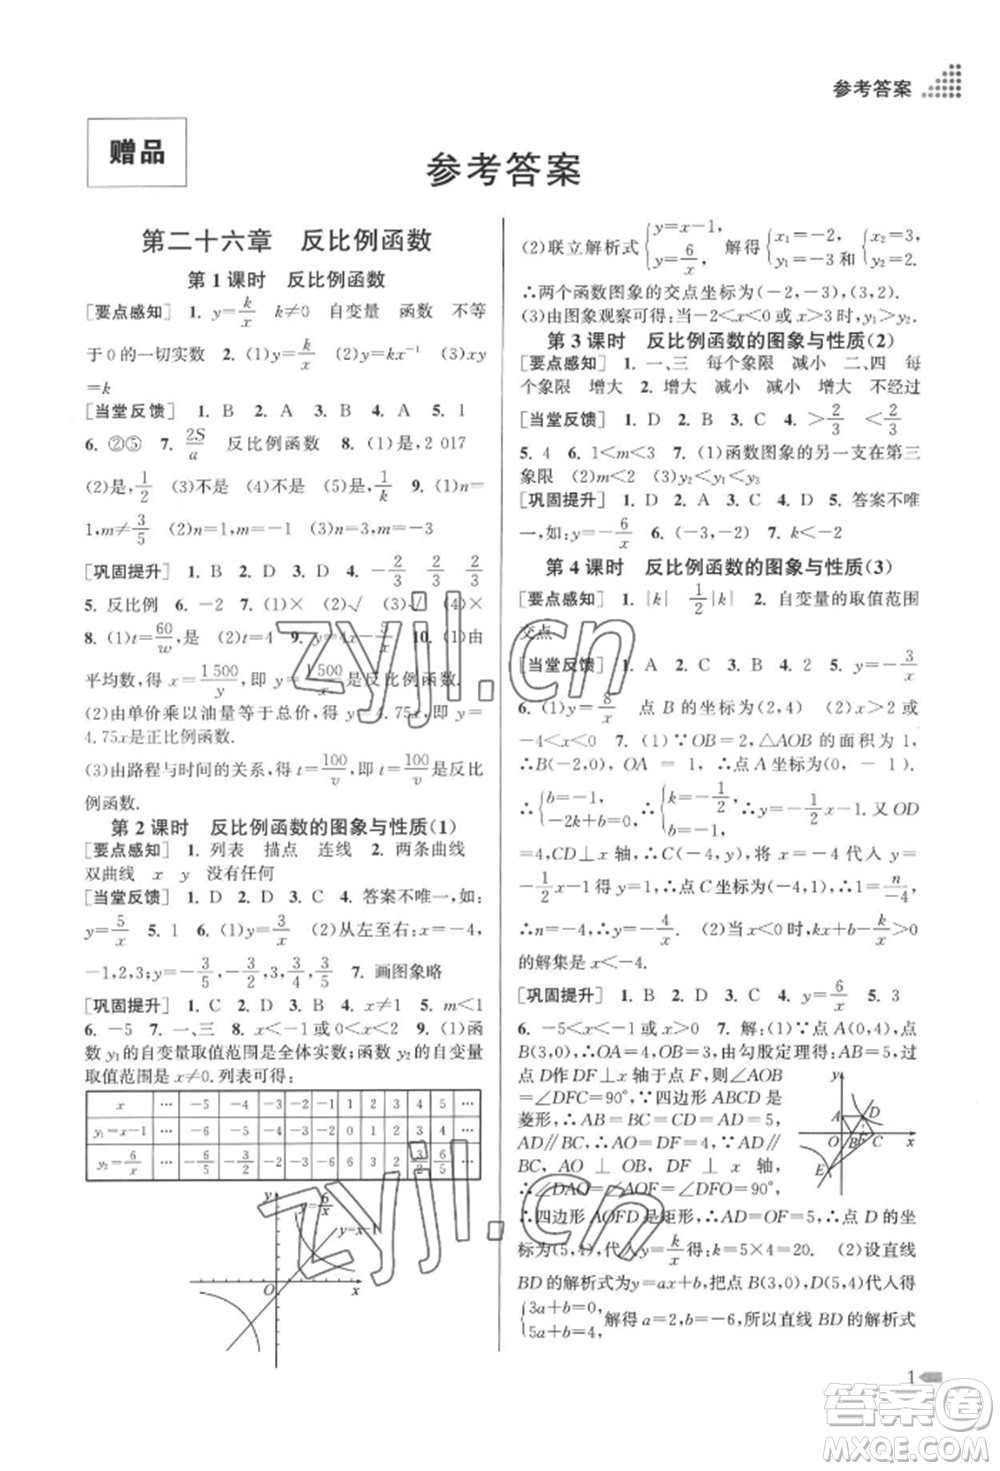 参考答案
赠品
参考答案
第二十六章　反比例函数
第1课时　反比例函数
[要点感知]　1. y=k/x　k≠0　自变量　函数　不等
于0的一切实数　2. (1)y=k/x　(2)y=kx⁻¹　(3)xy
=k
[当堂反馈]　1. B　2. A　3. A　4. A　5. 1
6. ②⑤　7. 2S/a　反比例函数　8. (1)是,2 017
(2)是,1/2　(3)不是　(4)不是　9. (1)n=
1,m≠3/5　(2)n=1,m=-1　(3)n=-m=-3
[巩固提升]　1. B　2. D　3. D　4. -2/3　-2/3
5. 反比例　6. -2　7. (1)×　(2)√　(3)√　(4)×
8. (1)t=60/w,是　(2)t=4　9. y=4x-5/x　10. (1)由
平均数,得x=1 500/y,即y=1 500/x是反比例函数.
(2)由单价乘以油量等于总价,得y=4.75x,即y=
4.75x是正比例函数.
(3)由路程与时间的关系,得t=100/v,即t=100/v是反比
例函数.
第2课时　反比例函数的图象与性质(1)
[要点感知]　1. 列表　描点　连线　2. 两条曲线
双曲线　x　y　没有任何
[当堂反馈]　1. D　2. D　3. C　4. 答案不唯一,如:
y=5/x　5. 1　6. (1)y=3/x　(2)从左至右:x=-4,
-1,2,3;y=-3/5,-3/2,3,3/5　7. 画图象略
[巩固提升]　1. C　2. D　3. B　4. x≠1　5. m<1
6. -5　7. 一、三　8. x<-1或0<x<1　9. (1)函
数y₁的自变量取值范围是全体实数;函数y₂的自变量
取值范围是x≠0.列表可得:
x　…　-5　-4　-3　-2　-1　1　2　3　4　5　…
y₁=x-1　…　-6　-5　-4　-3　-2　0　1　2　3　4　…
y₂=6/x　…　-6/5　-3/2　-2　-3　-6　6　3　2　3/2　6/5　…
y
y=6/x
y=x-1
O
x
(2)联立解析式{y=x-1, y=6/x,　解得{x₁=-2, y₁=-3,　{x₂=3, y₂=2.
∴两个函数图象的交点坐标为(-2,-3),(3,2).
(3)由图象观察可得:当-2<x<0或x>3时,y₁>y₂.
第3课时　反比例函数的图象与性质(2)
[要点感知]　1. 一、三　每个象限　减小　二、四　每
个象限　增大　2. 增大　减小　减小　增大　不经过
[当堂反馈]　1. D　2. B　3. C　4. >2/3　<2/3
5. 4　6. 1<m<3　7. (1)函数图象的另一支在第三
象限　(2)m<2　(3)y₂<y₁<y₃
[巩固提升]　1. D　2. A　3. C　4. D　5. 答案不唯
一,如:y=-6/x　6. (-3,-2)　7. k<-2
第4课时　反比例函数的图象与性质(3)
[要点感知]　1. |k|　1/2|k|　2. 自变量的取值范围
交点
[当堂反馈]　1. A　2. C　3. A　4. 2　5. y=-3/x
6. (1)y=8/x　点B的坐标为(2,4)　(2)x>2或
-4<x<0　7. (1)∵OB=2,△AOB的面积为1,
∴B(-2,0),OA=1.∴点A坐标为(0,-1).
∴{b=-1, -2k+b=0.　∴{k=-1/2, b=-1.　∴y=-1/2x-1.又OD
=4,CD⊥x轴,∴C(-4,y),将x=-4代入y=
-1/2x-1得y=1,∴点C坐标为(-4,1),∴1=n/-4.
∴n=-4,∴y=-4/x.　(2)当x<0时,kx+b-k/x>0
的解集是x<-4.
[巩固提升]　1. B　2. D　3. A　4. y=6/x　5. 3
6. -5<x<-1或x>0　7. 解:(1)∵点A(0,4),点
B(3,0),∴OA=4,OB=3,由勾股定理得:AB=5,
过点D作DF⊥x轴于点F,则∠AOB
=∠DFC=90°,∵四边形ABCD是
菱形,∴AB=BC=CD=AD=5,
AD∥BC,∴AO=DF,∵AD∥
BC,AO⊥OB,DF⊥x轴,
∴∠DAO=∠AOF=∠DFO=90°,
∴四边形AOFD是矩形,∴AD=OF=5,∴点D坐
标为(5,4),代入y=k/x得:k=5×4=20.　(2)设直线
BD的解析式为y=ax+b,把点B(3,0),D(5,4)代入得
{3a+b=0, 5a+b=4,　解得a=2,b=-6,所以直线BD的解析式
y
A
D
O
B
F
C
x
E
zyjl.cn
zyjl.cn
1
答案圈
MXQE.COM